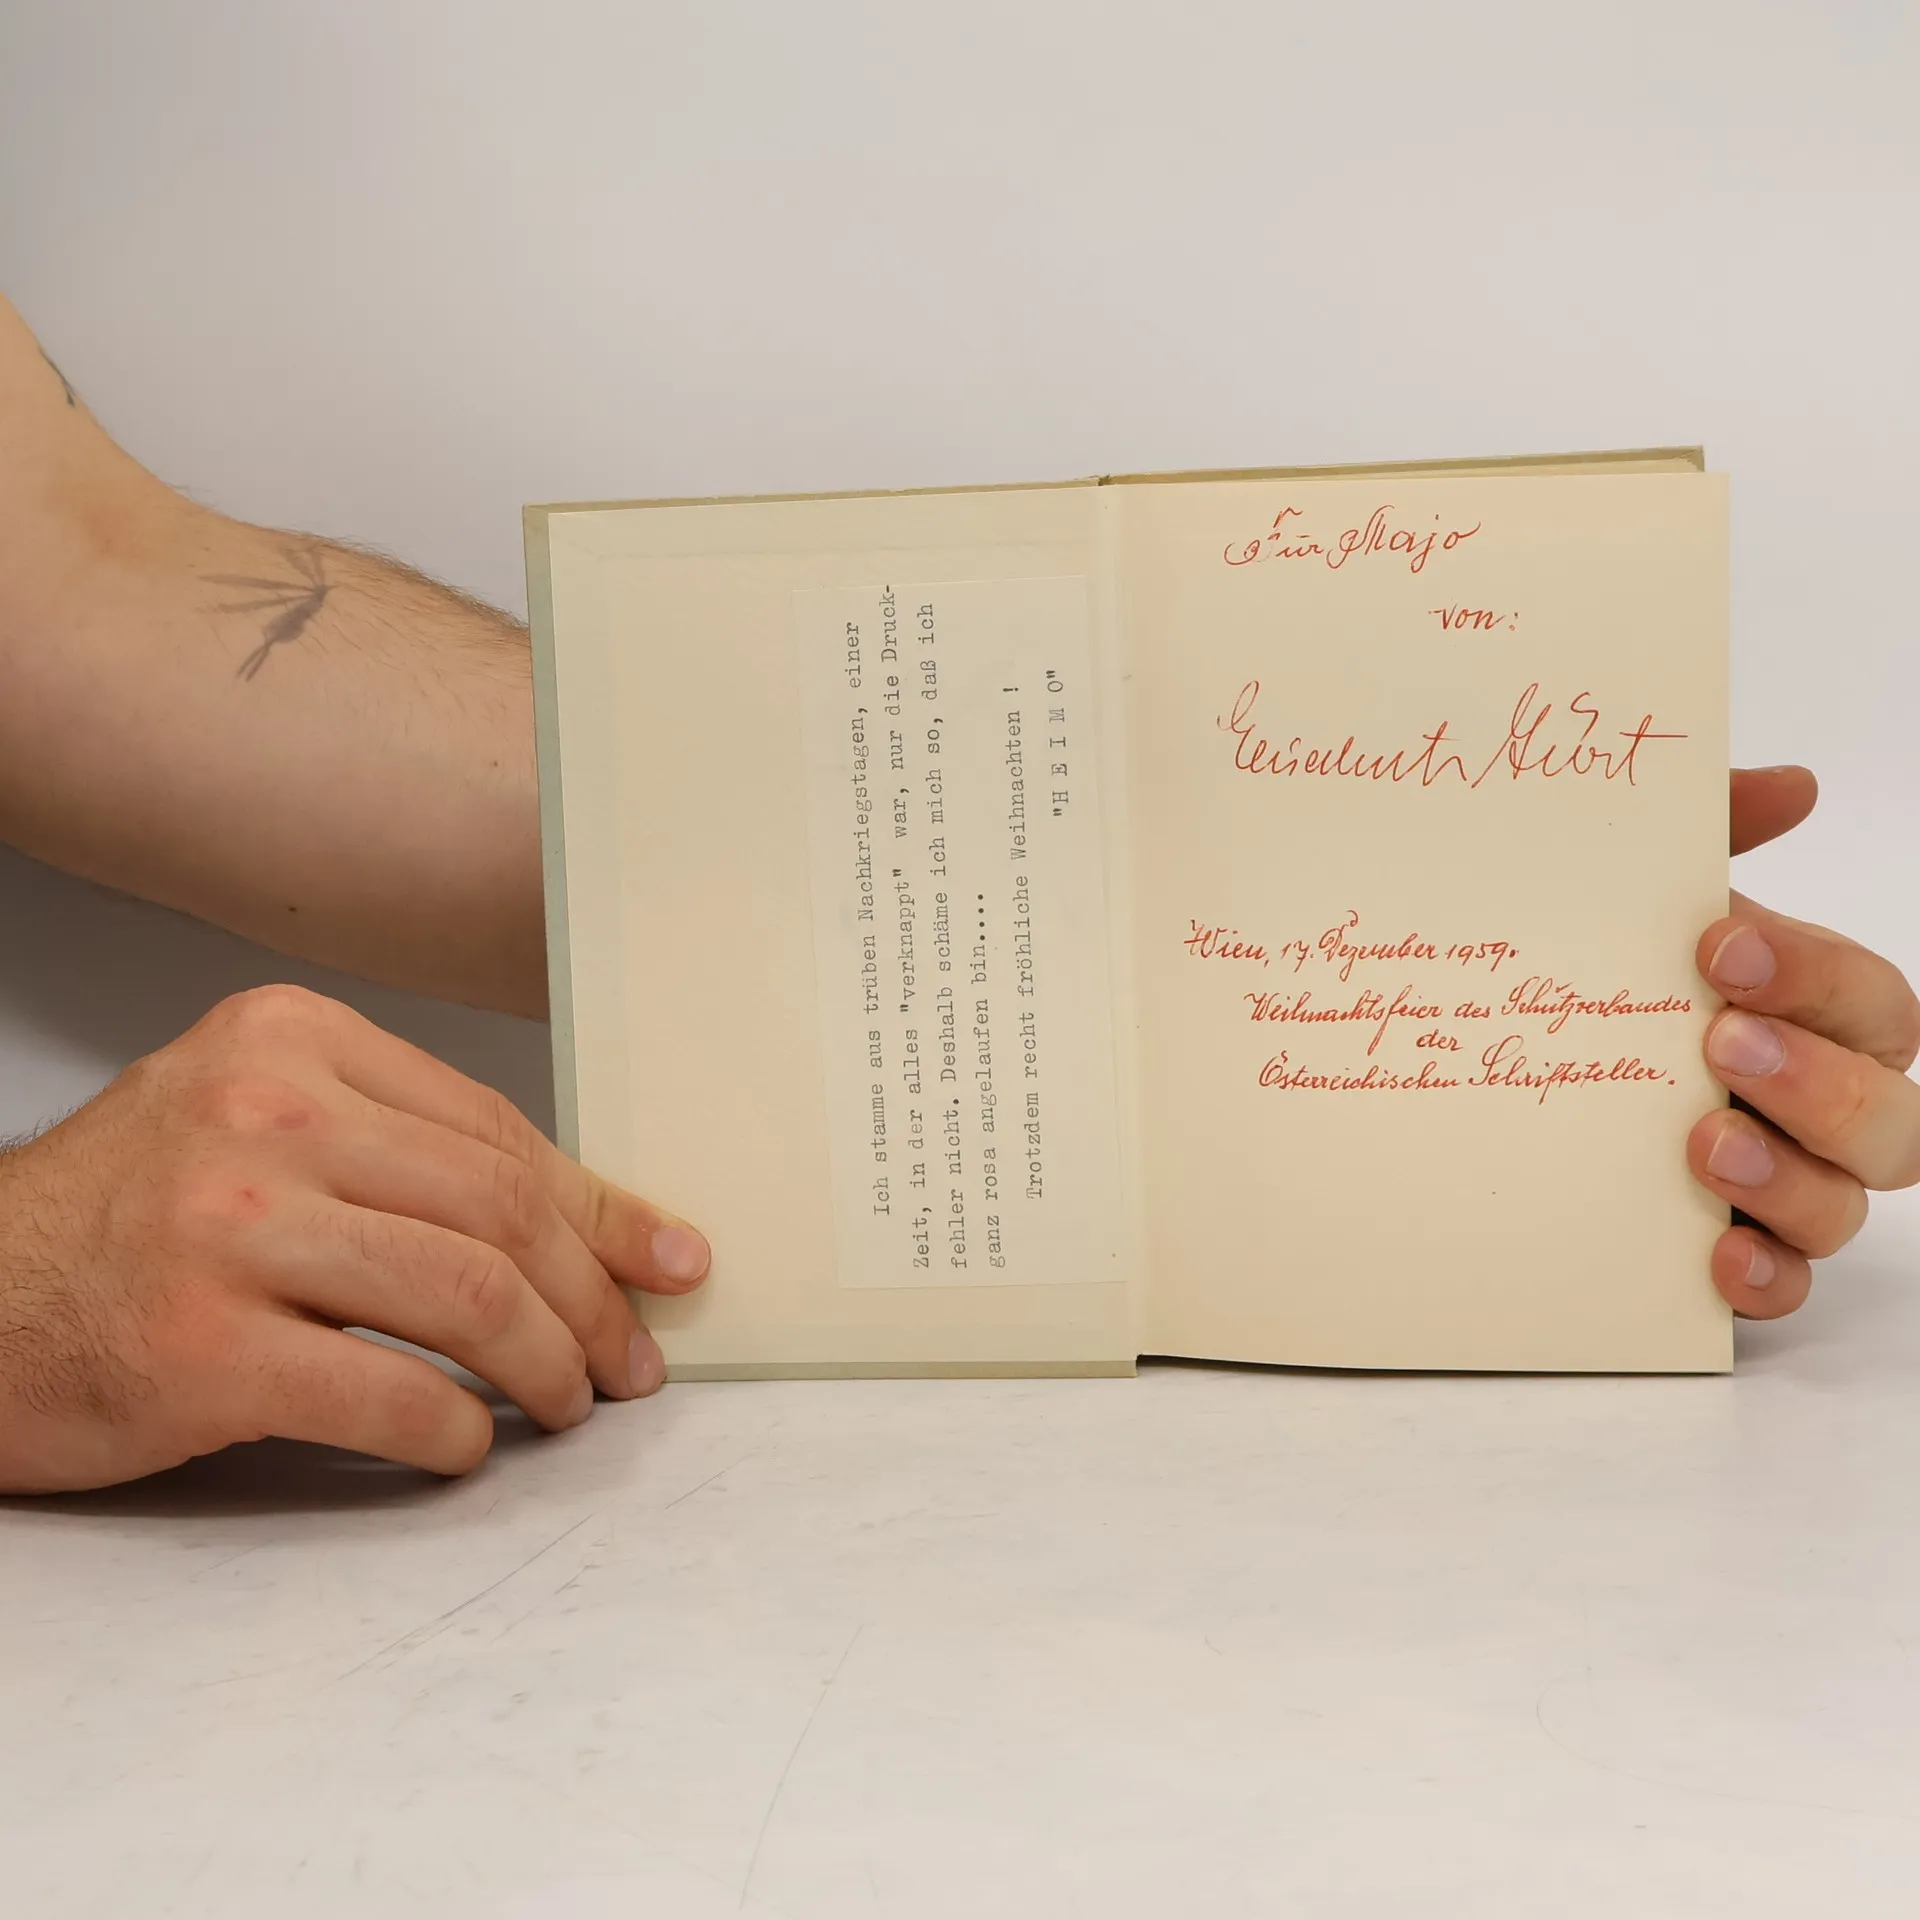 Ich stamme aus trüben Nachkriegstagen, einer
Zeit, in der alles "verknappt" war, nur die Druck-
fehler nicht. Deshalb schäme ich mich so, daß ich
ganz rosa angelaufen bin....
Trotzdem recht fröhliche Weihnachten !
"H E I M O"
Für Majo
von:
Elisabeth Gürt
Wien, 17. Dezember 1959.
Weihnachtsfeier des Schutzverbandes
der
Österreichischen Schriftsteller.